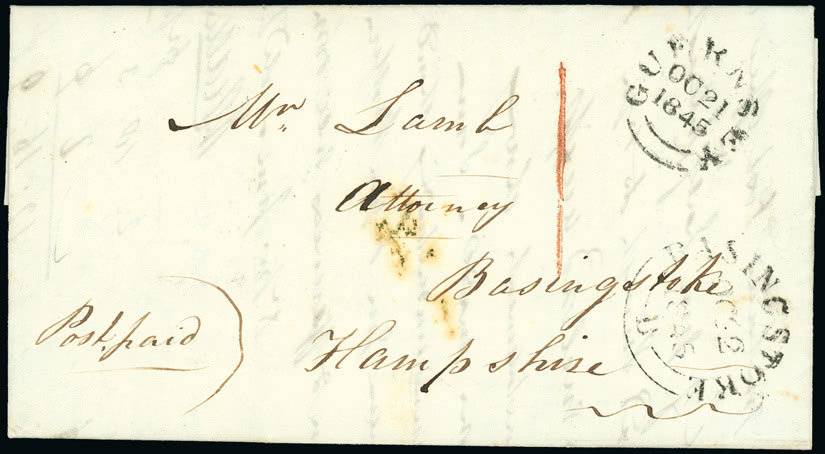 GUERNSEY
OC 21
1845
Mr. Lamb
Attorney
Basingstoke
Hampshire
Post paid
1
BASINGSTOKE
1845